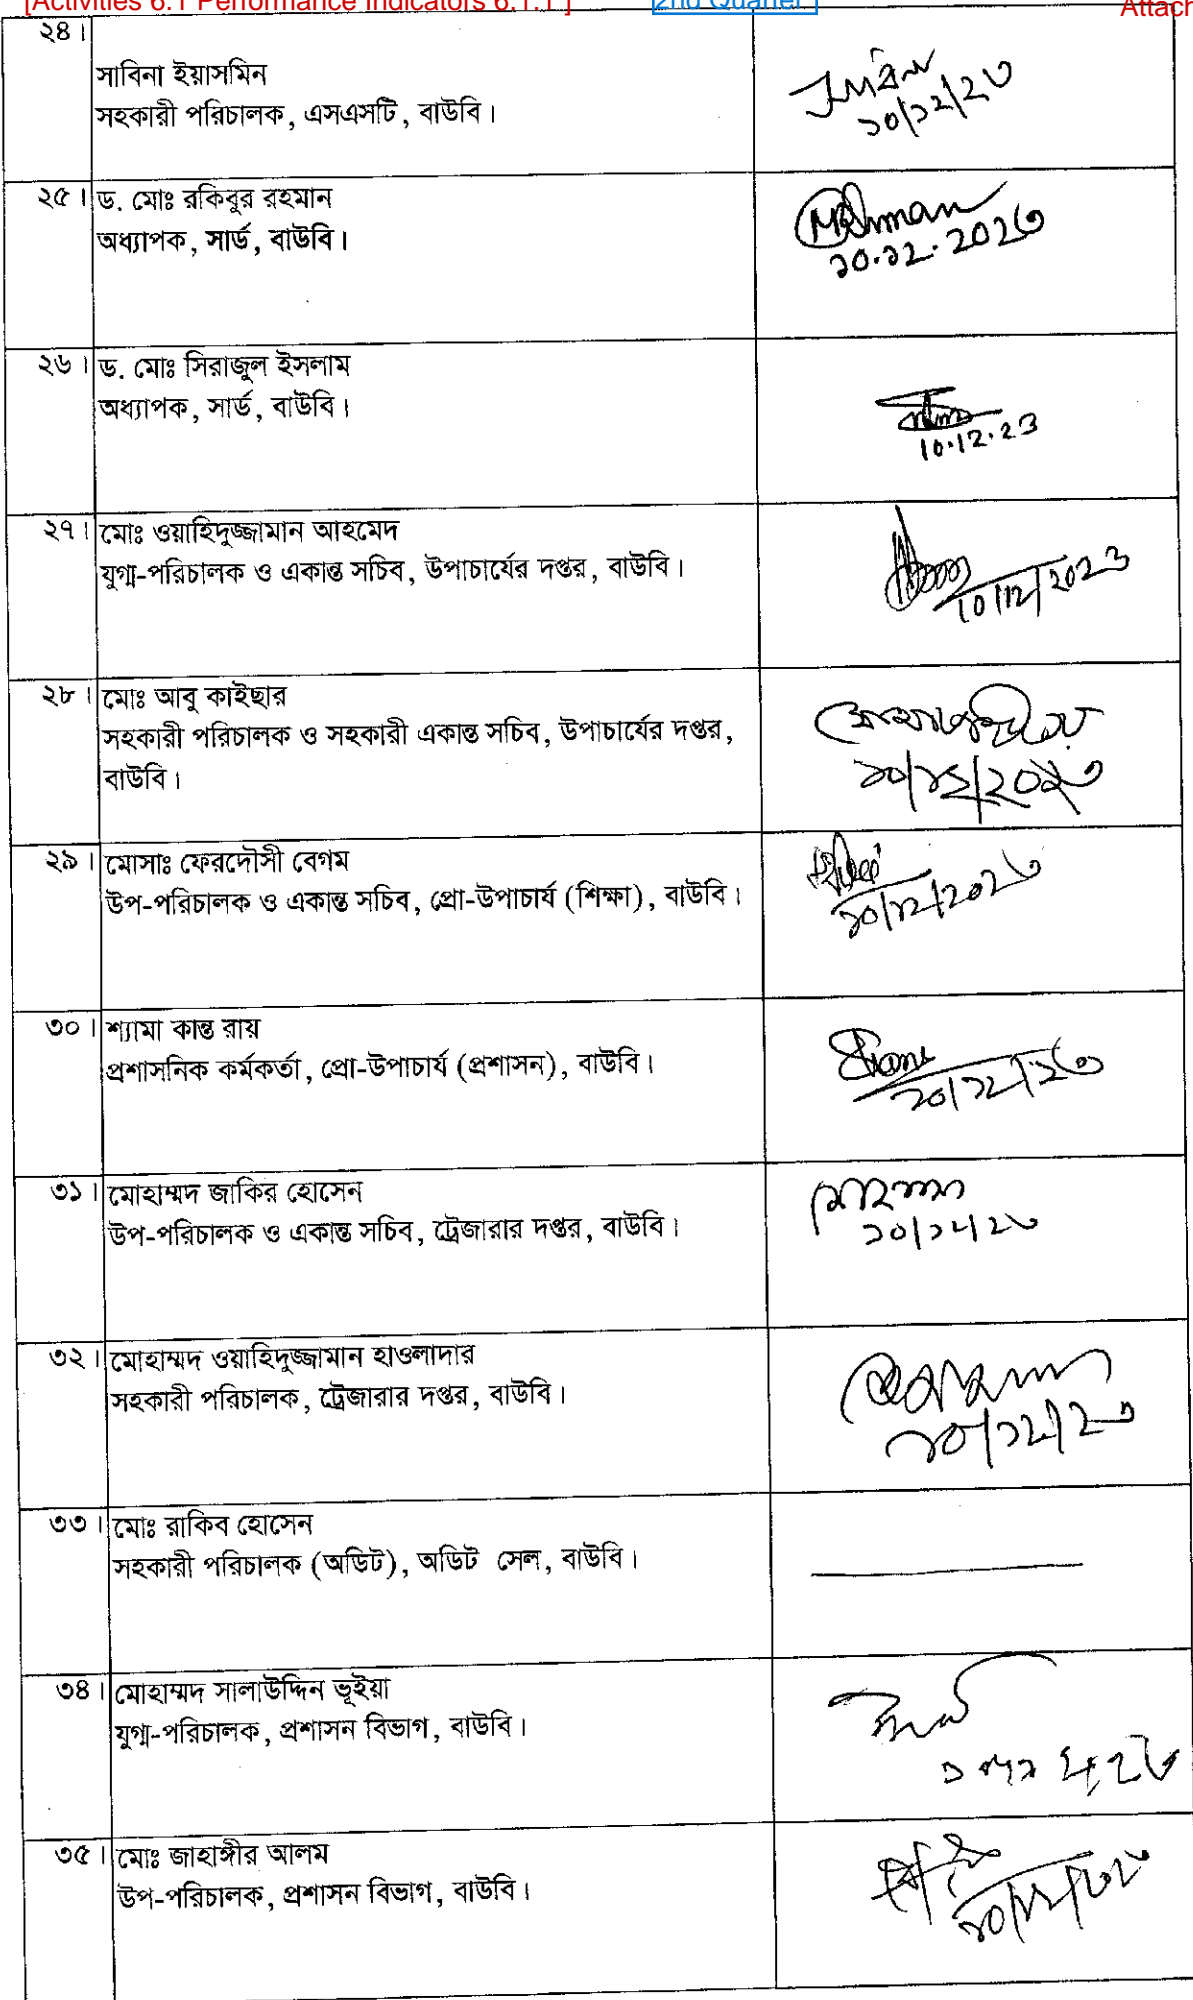 [Activities 6.1 Performance Indicators 6.1.1 ] 2nd Quarter Attach
২৪।
সাবিনা ইয়াসমিন
সহকারী পরিচালক, এসএসটি, বাউবি।
১০/১২/২৩
২৫। ড. মোঃ রকিবুর রহমান
অধ্যাপক, সার্ড, বাউবি।
১০.১২.২০২৩
২৬। ড. মোঃ সিরাজুল ইসলাম
অধ্যাপক, সার্ড, বাউবি।
10.12.23
২৭। মোঃ ওয়াহিদুজ্জামান আহমেদ
যুগ্ম-পরিচালক ও একান্ত সচিব, উপাচার্যের দপ্তর, বাউবি।
10/12/2023
২৮। মোঃ আবু কাইছার
সহকারী পরিচালক ও সহকারী একান্ত সচিব, উপাচার্যের দপ্তর,
বাউবি।
১০/১২/২০২৩
২৯। মোসাঃ ফেরদৌসী বেগম
উপ-পরিচালক ও একান্ত সচিব, প্রো-উপাচার্য (শিক্ষা), বাউবি।
১০/১২/২০২৩
৩০। শ্যামা কান্ত রায়
প্রশাসনিক কর্মকর্তা, প্রো-উপাচার্য (প্রশাসন), বাউবি।
১০/১২/২৩
৩১। মোহাম্মদ জাকির হোসেন
উপ-পরিচালক ও একান্ত সচিব, ট্রেজারার দপ্তর, বাউবি।
১০/১২/২৩
৩২। মোহাম্মদ ওয়াহিদুজ্জামান হাওলাদার
সহকারী পরিচালক, ট্রেজারার দপ্তর, বাউবি।
১০/১২/২৩
৩৩। মোঃ রাকিব হোসেন
সহকারী পরিচালক (অডিট), অডিট সেল, বাউবি।
৩৪। মোহাম্মদ সালাউদ্দিন ভূইয়া
যুগ্ম-পরিচালক, প্রশাসন বিভাগ, বাউবি।
৩৫। মোঃ জাহাঙ্গীর আলম
উপ-পরিচালক, প্রশাসন বিভাগ, বাউবি।